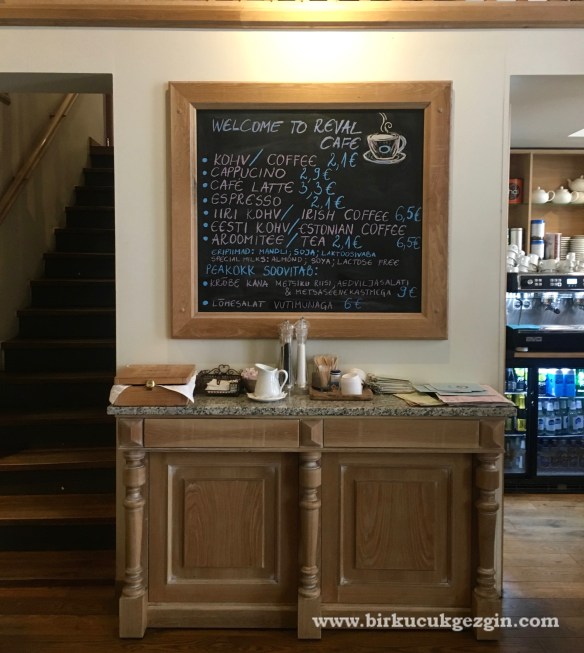 WELCOME TO REVAL
CAFE
• KOHV/COFFEE 2,1€
• CAPPUCINO 2,9€
• CAFÉ LATTE 3,3€
ESPRESSO 2,1€
• IIRI KOHV/IRISH COFFEE 6,5€
• EESTI KOHV/ESTONIAN COFFEE
• AROOMITEE/TEA 2,1€ 6,5€
ERIPIIMAD: MANDLI; SOJA; LAKTOOSIVABA
SPECIAL MILKS: ALMOND; SOYA; LACTOSE FREE
PEAKOKK SOOVITAB:
• KRÕBE KANA METSIKU RIISI, AEDVILJASALATI
& METSASEENEKASTMEGA 9€
• LÕHESALAT VUTIMUNAGA 6€
www.birkucukgezgin.com